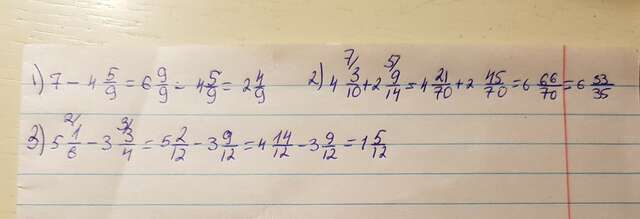 1) 7 - 4 5/9 = 6 9/9 - 4 5/9 = 2 4/9 2) 4 3/10 + 2 9/14 = 4 21/70 + 2 45/70 = 6 66/70 = 6 33/35
3) 5 1/6 - 3 3/4 = 5 2/12 - 3 9/12 = 4 14/12 - 3 9/12 = 1 5/12